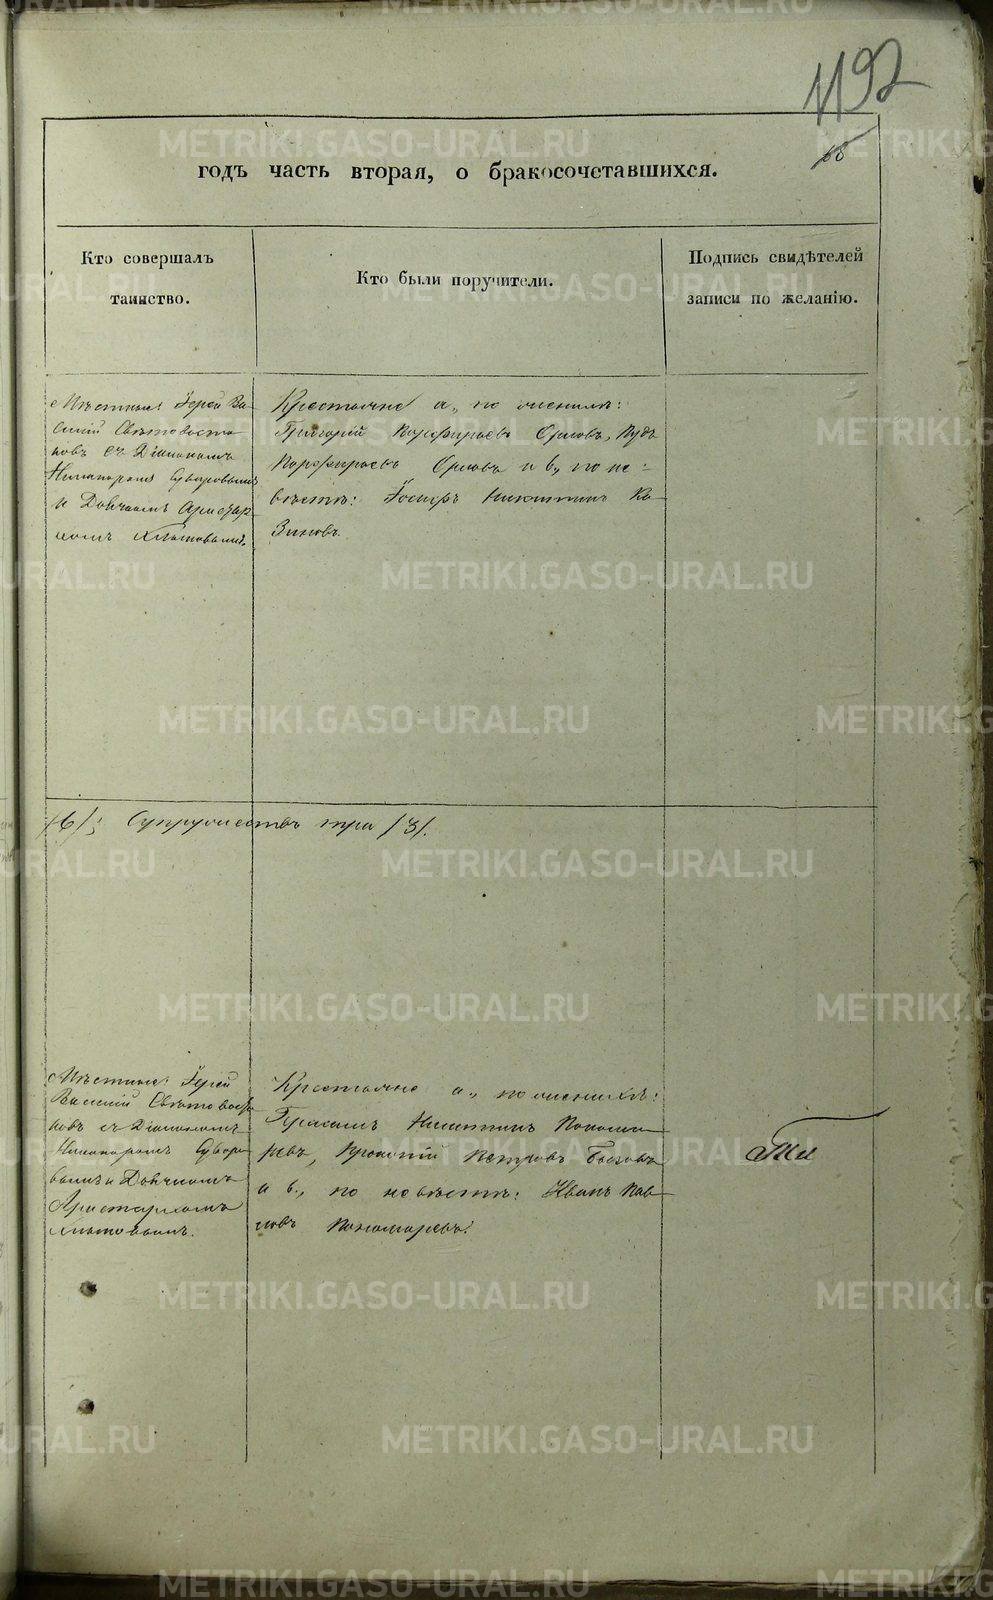 1192
68
годъ часть вторая, о бракосочетавшихся.
Кто совершалъ
таинство.
Кто были поручители.
Подпись свидѣтелей
записи по желанію.
Мѣстный Іерей Ва-
силій Свѣтовосто-
ковъ съ Діакономъ
Никаноромъ Суворовымъ
и Дьячкомъ Аристар-
хомъ Хлыновымъ.
Крестьяне а, по женихѣ:
Григорій Порфирьевъ Орловъ, Кудъ
Порфирьевъ Орловъ и в, по не-
вѣстѣ: Іосифъ Никитинъ Ка-
зиковъ.
/6/; Супружествъ три /3/.
Мѣстный Іерей
Василій Свѣтовосто-
ковъ съ Діакономъ
Никаноромъ Суворо-
вымъ и Дьячкомъ
Аристархомъ
Хлыновымъ.
Крестьяне а, по женихѣ:
Никитинъ Понома-
ревъ, Прокопій Петровъ Быковъ
а в, по невѣстѣ: Иванъ Пав-
ловъ Пономаревъ.
METRIKI.GASO-URAL.RU